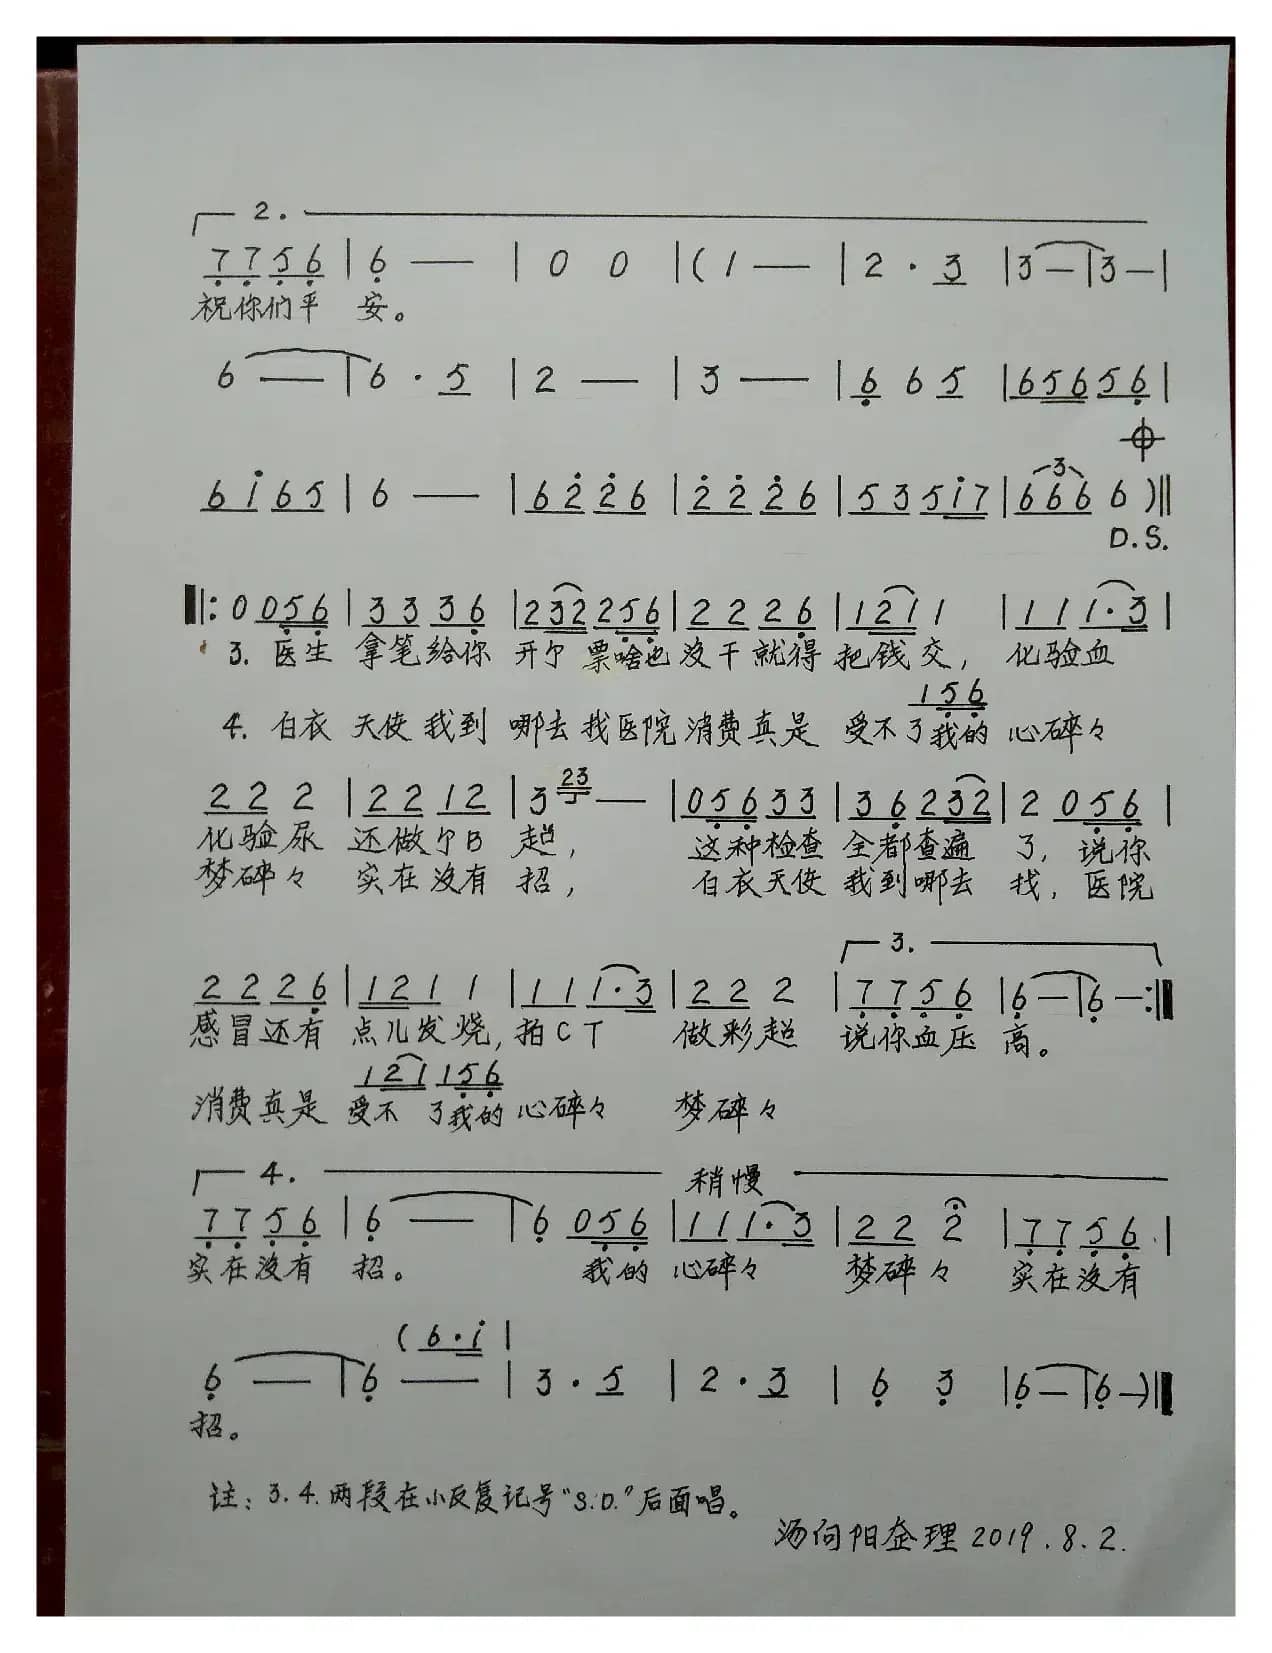 2.
7 7 5 6 | 6 — | 0 0 | ( 1 — | 2 · 3 | 3 — | 3 — |
祝你们平 安。
6 — | 6 · 5 | 2 — | 3 — | 6 6 5 | 6 5 6 5 6 |
6 i 6 5 | 6 — | 6 2 2 6 | 2 2 2 6 | 5 3 5 i 7 | 6 6 6 6 ) ‖
3
D.S.
‖: 0 0 5 6 | 3 3 3 6 | 2 3 2 2 5 6 | 2 2 2 6 | 1 2 1 1 | 1 1 1 · 3 |
3. 医生 拿笔给你 开个 票啥也 没干就得 把钱交, 化验血
1 5 6
4. 白衣 天使我到 哪去找医院 消费真是 受不了我的 心碎々
2 2 2 | 2 2 1 2 | 3 23 — | 0 5 6 3 3 | 3 6 2 3 2 | 2 0 5 6 |
化验尿 还做个B 超, 这种检查 全都查遍 了, 说你
梦碎々 实在没有 招, 白衣天使 我到哪去 找, 医院
3.
2 2 2 6 | 1 2 1 1 | 1 1 1 · 3 | 2 2 2 | 7 7 5 6 | 6 — | 6 — :‖
感冒还有 点儿发烧, 拍CT 做彩超 说你血压 高。
1 2 1 1 5 6
消费真是 受不 了我的 心碎々 梦碎々
4. 稍慢
7 7 5 6 | 6 — | 6 0 5 6 | 1 1 1 · 3 | 2 2 2 | 7 7 5 6 |
实在没有 招。 我的 心碎々 梦碎々 实在没有
( 6 · i |
6 — | 6 — | 3 · 5 | 2 · 3 | 6 3 | 6 — | 6 — ) ‖
招。
注: 3.4.两段在小反复记号"S.D."后面唱。
汤向阳整理 2019.8.2.